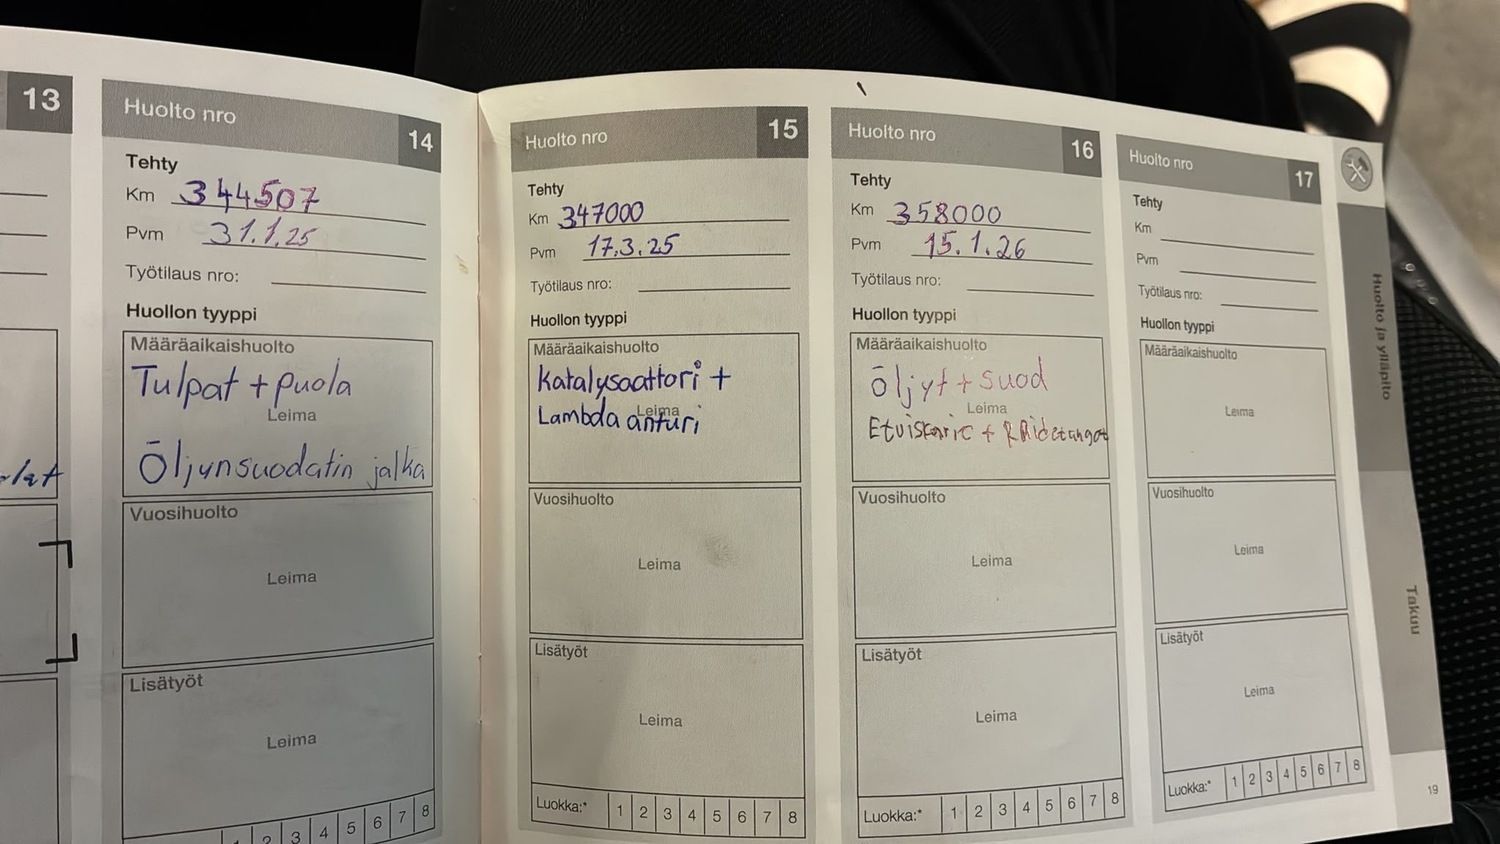 13
Huolto nro 14
Tehty
Km 344507
Pvm 31.1.25
Työtilaus nro:
Huollon tyyppi
Määräaikaishuolto
Tulpat + puola
Leima
Öljynsuodatin jalka
Vuosihuolto
Leima
Lisätyöt
Leima
1 2 3 4 5 6 7 8
Huolto nro 15
Tehty
Km 347000
Pvm 17.3.25
Työtilaus nro:
Huollon tyyppi
Määräaikaishuolto
Katalysaattori +
Leima
Lambda anturi
Vuosihuolto
Leima
Lisätyöt
Leima
Luokka:* 1 2 3 4 5 6 7 8
Huolto nro 16
Tehty
Km 358000
Pvm 15.1.26
Työtilaus nro:
Huollon tyyppi
Määräaikaishuolto
Öljyt + suod
Leima
Etuiskarit + Raidetangot
Vuosihuolto
Leima
Lisätyöt
Leima
Luokka:* 1 2 3 4 5 6 7 8
Huolto nro 17
Tehty
Km
Pvm
Työtilaus nro:
Huollon tyyppi
Määräaikaishuolto
Leima
Vuosihuolto
Leima
Lisätyöt
Leima
Luokka:* 1 2 3 4 5 6 7 8
Huolto ja ylläpito
Takuu
19